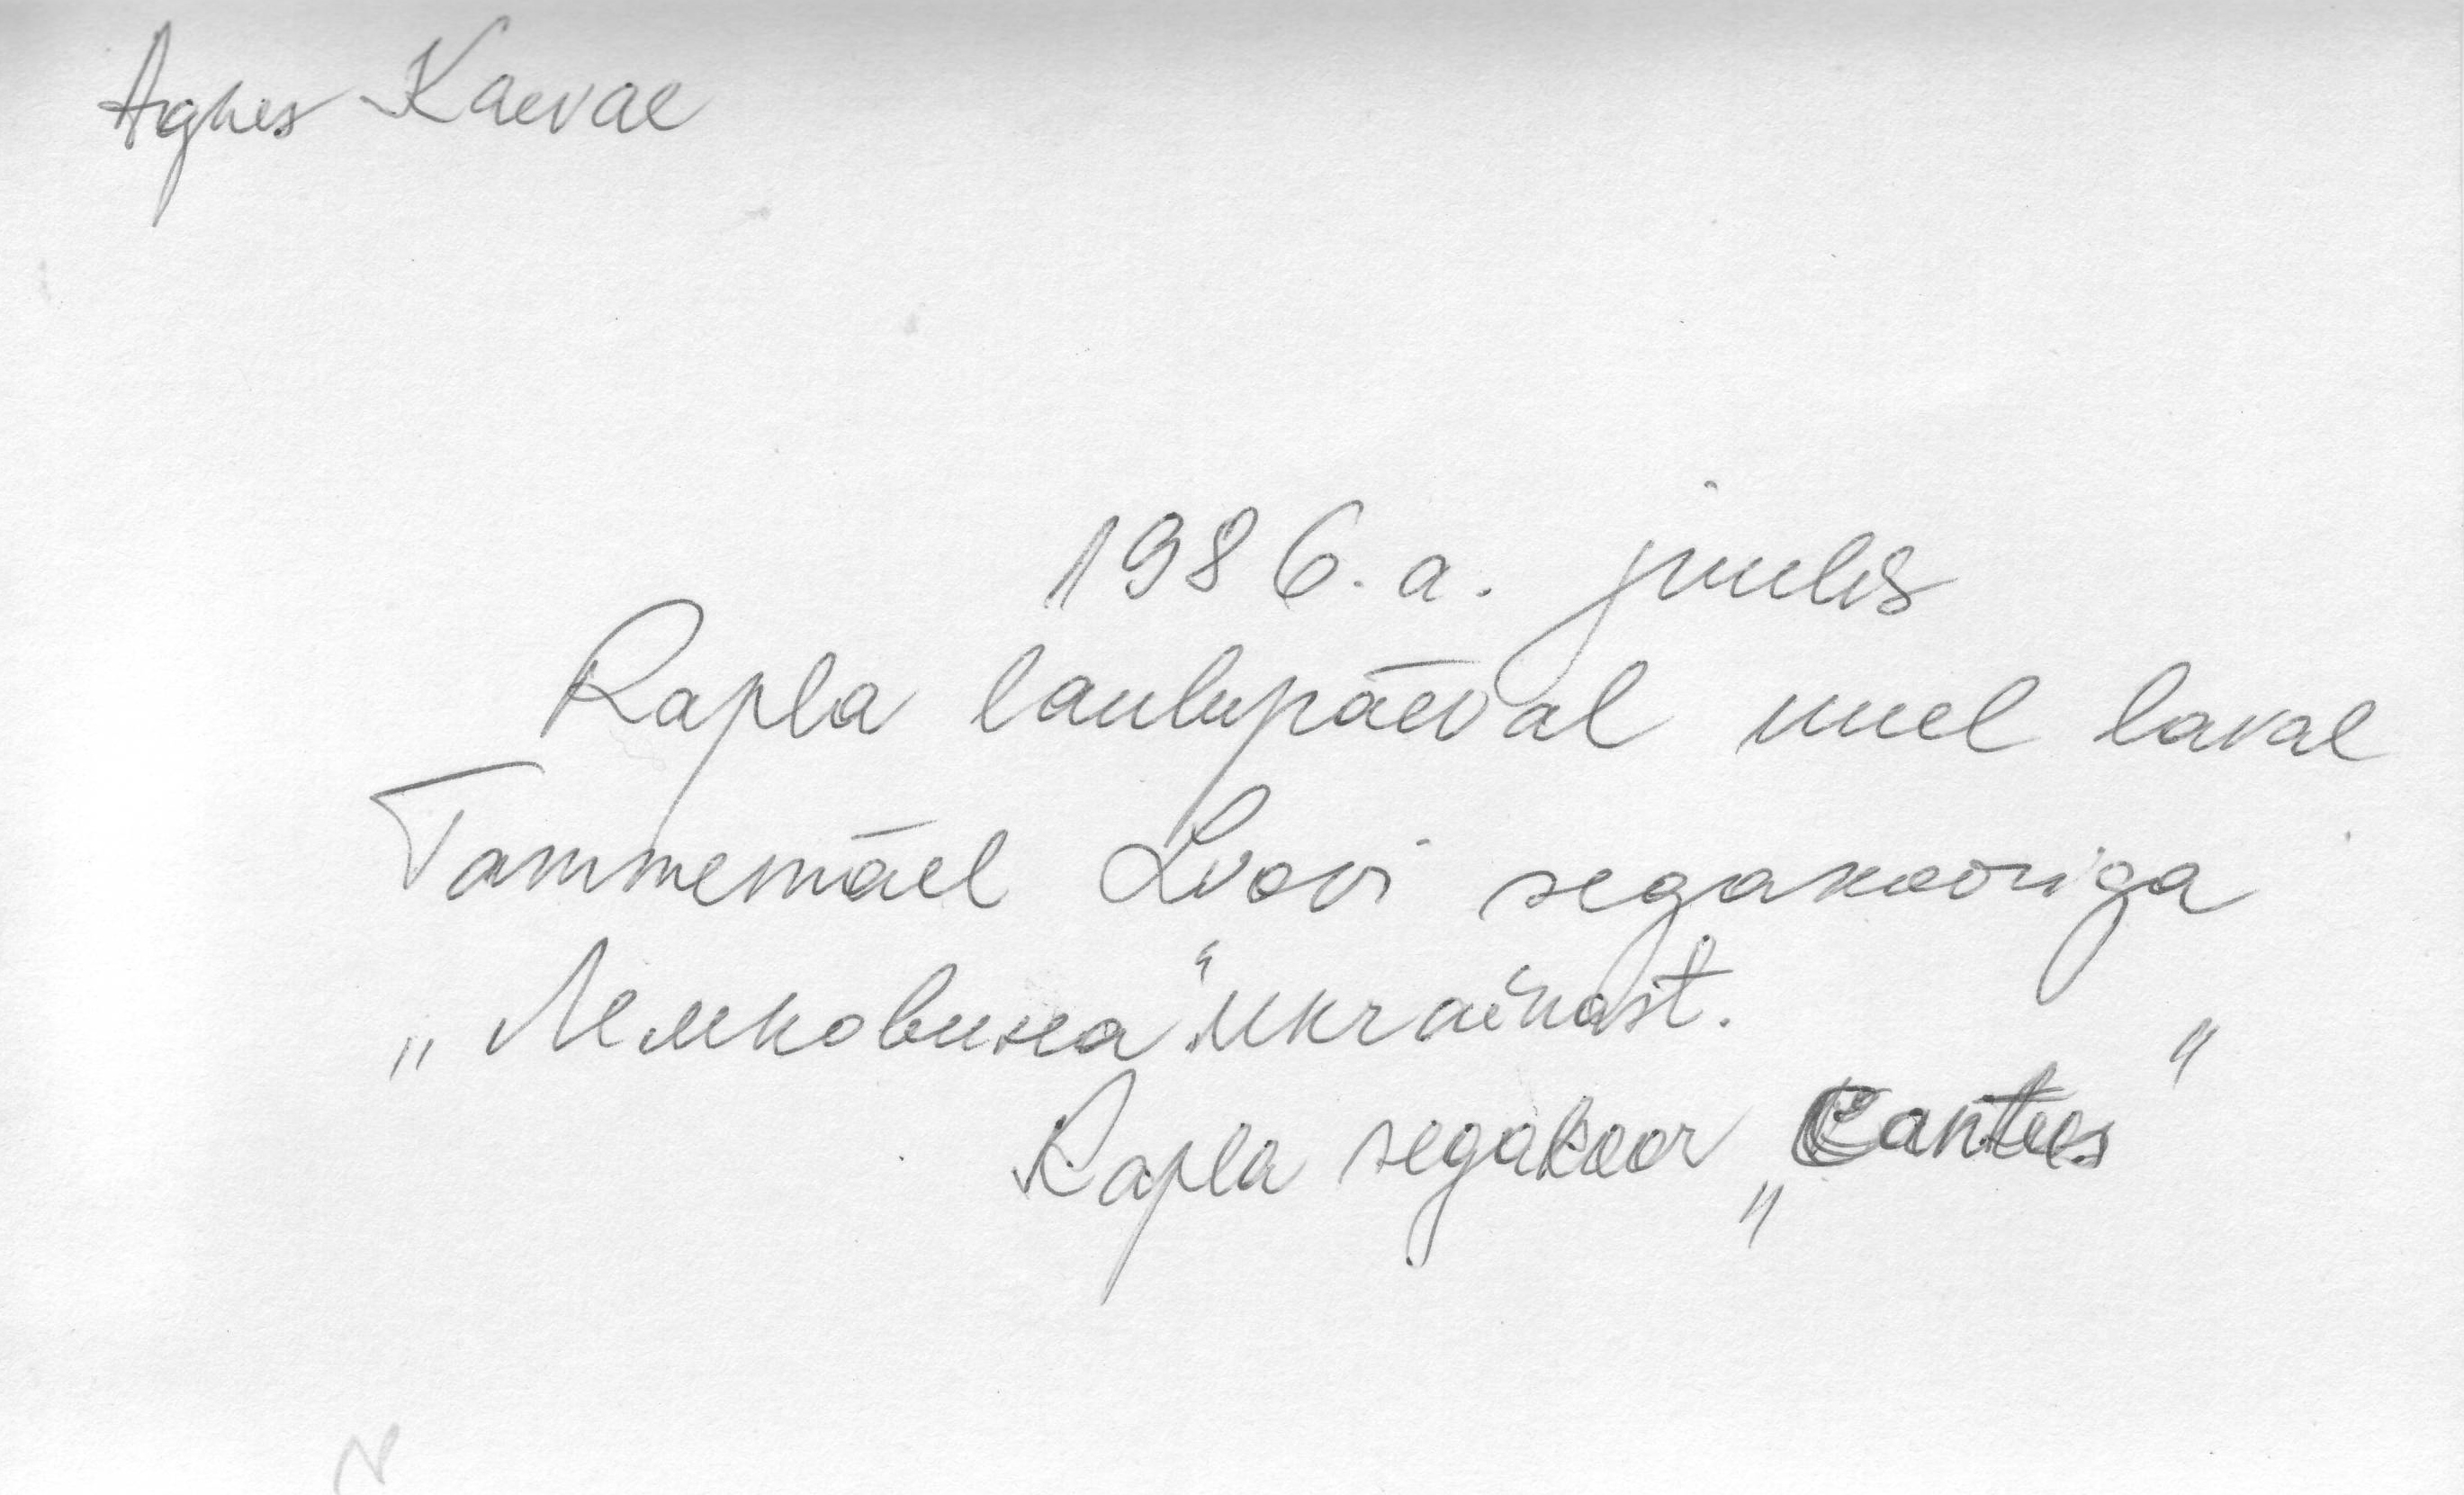 Agnes Kaevae
1986. a. juulis
Rapla laulupäeval uuel laval
Tammemäel Lvovi segakooriga
„Лемковина" Ukrainast.
Rapla segakoor „Cantus"